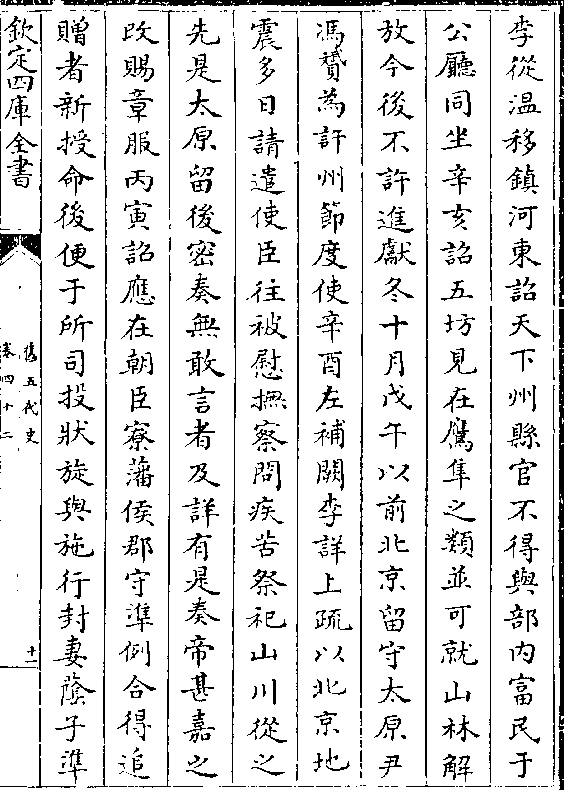 李從溫移鎮河東詔天下州縣官不得與部内富民于
公廳同坐辛亥詔五坊見在鷹隼之類並可就山林解
放今後不許進獻冬十月戊午以前北京留守太原尹
馮贇為許州節度使辛酉左補闕李詳上疏以北京地
震多日請遣使臣往被慰撫察問疾苦祭祀山川從之
先是太原留後密奏無敢言者及詳有是奏帝甚嘉之
改賜章服丙寅詔應在朝臣寮藩侯郡守準例合得追
贈者新授命後便于所司投狀旋與施行封妻蔭子準
欽定四庫全書
舊五代史
卷四十二
十二